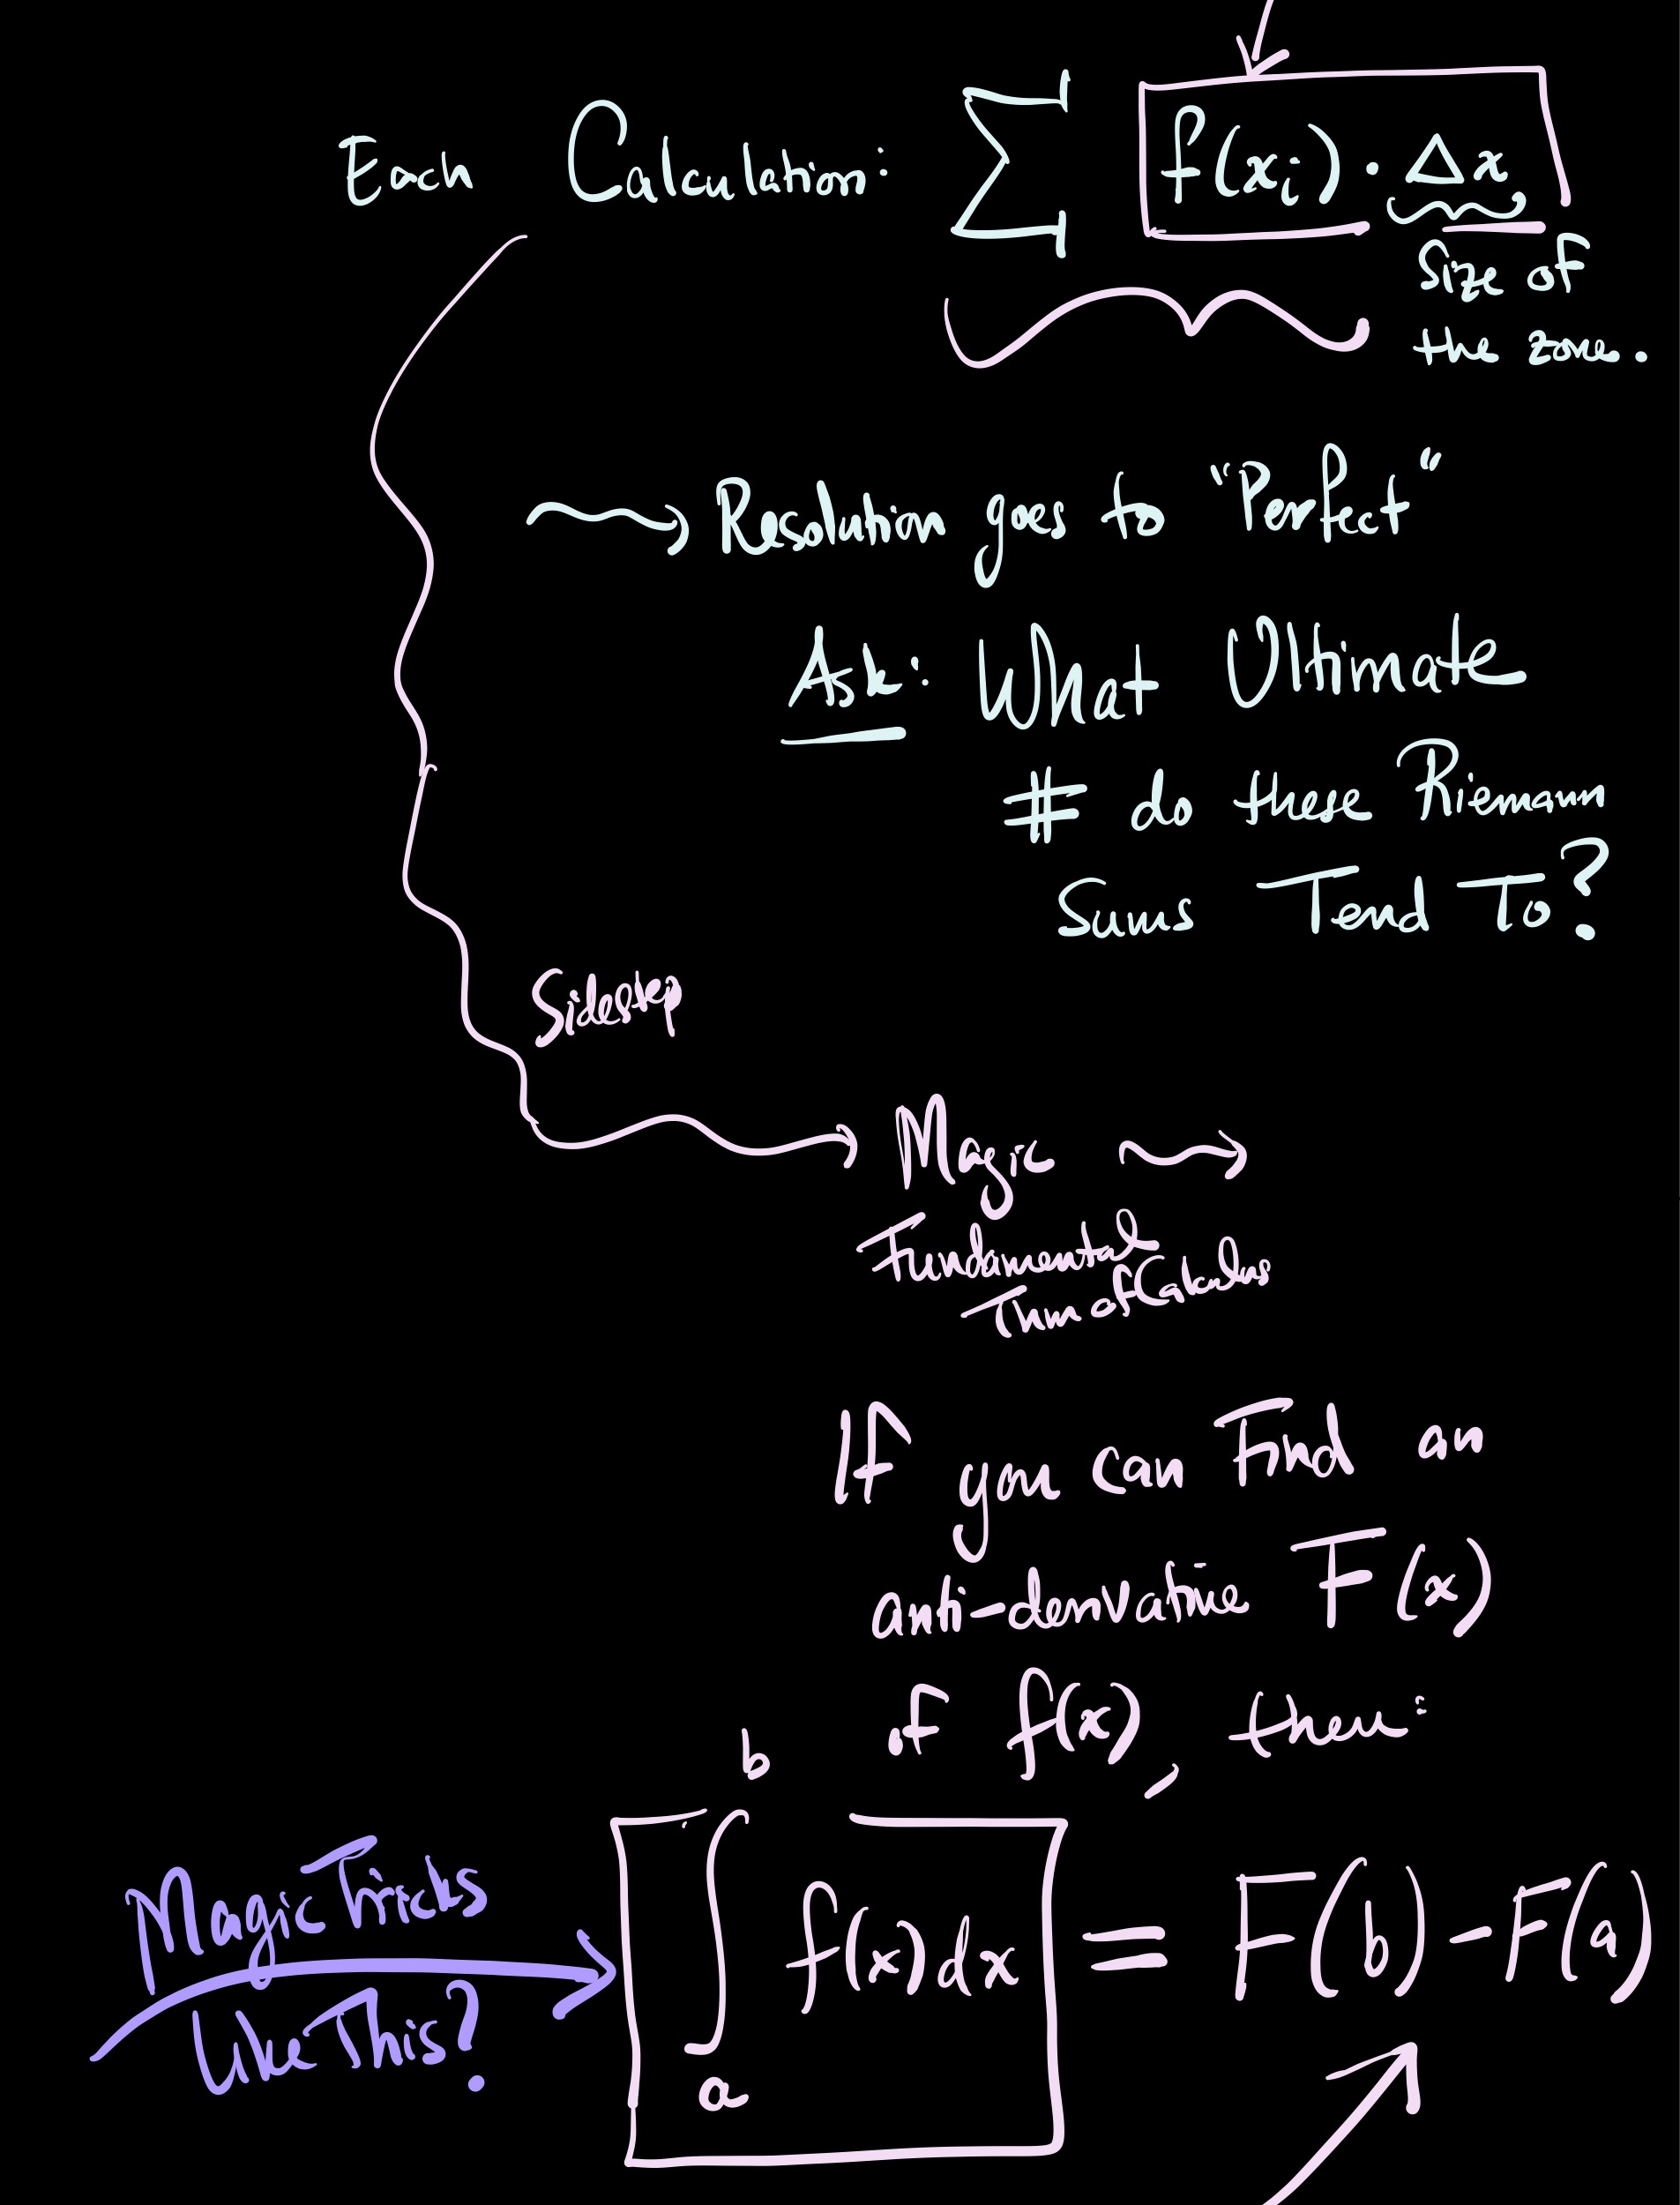 Each Calculation: ∑ f(xᵢ) · Δx
Size of
the zone..
Resolution goes to "Perfect"
Ask: What Ultimate
# do these Riemann
Sums Tend To?
Sidestep
Magic
Fundamental
Thm of Calculus
If you can Find an
anti-derivative F(x)
of f(x), then:
∫ₐᵇ f(x) dx = F(b) - F(a)
Magic Tricks
Like This!